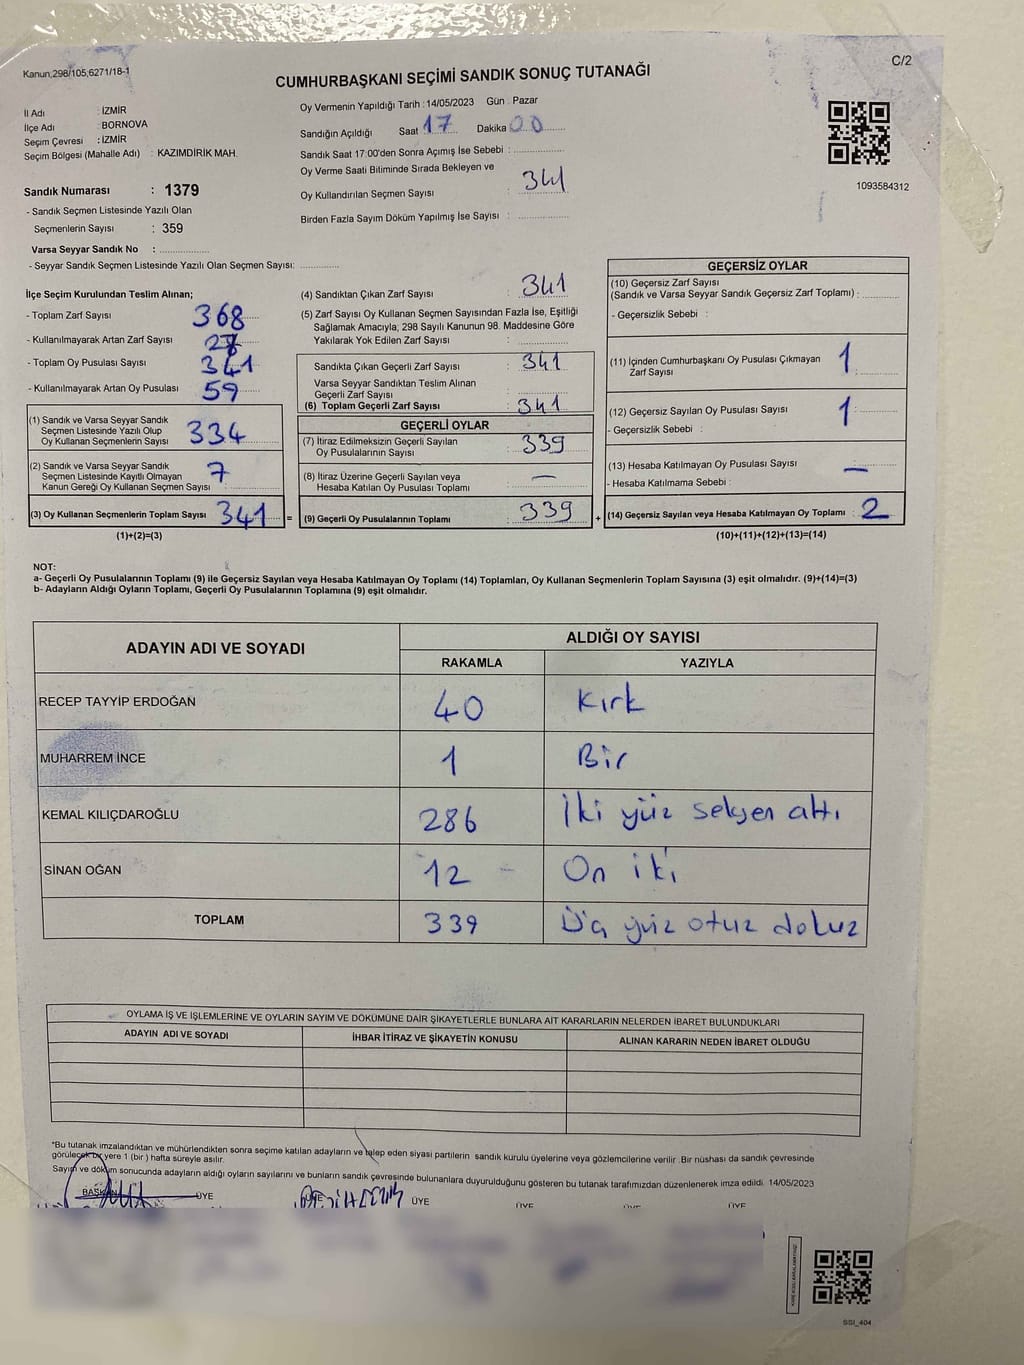 Kanun,298/105,6271/18-1
C/2
CUMHURBAŞKANI SEÇİMİ SANDIK SONUÇ TUTANAĞI
İl Adı : İZMİR
İlçe Adı : BORNOVA
Seçim Çevresi : İZMİR
Seçim Bölgesi (Mahalle Adı) : KAZIMDİRİK MAH.
Sandık Numarası : 1379
- Sandık Seçmen Listesinde Yazılı Olan
Seçmenlerin Sayısı : 359
Varsa Seyyar Sandık No :
- Seyyar Sandık Seçmen Listesinde Yazılı Olan Seçmen Sayısı:
Oy Vermenin Yapıldığı Tarih : 14/05/2023 Gün : Pazar
Sandığın Açıldığı Saat 17 Dakika 00
Sandık Saat 17:00'den Sonra Açımış İse Sebebi :
Oy Verme Saati Bitiminde Sırada Bekleyen ve
Oy Kullandırılan Seçmen Sayısı : 341
Birden Fazla Sayım Döküm Yapılmış İse Sayısı :
1093584312
İlçe Seçim Kurulundan Teslim Alınan;
- Toplam Zarf Sayısı 368
- Kullanılmayarak Artan Zarf Sayısı 27
- Toplam Oy Pusulası Sayısı 341
- Kullanılmayarak Artan Oy Pusulası 59
(1) Sandık ve Varsa Seyyar Sandık
Seçmen Listesinde Yazılı Olup
Oy Kullanan Seçmenlerin Sayısı 334
(2) Sandık ve Varsa Seyyar Sandık
Seçmen Listesinde Kayıtlı Olmayan
Kanun Gereği Oy Kullanan Seçmen Sayısı 7
(3) Oy Kullanan Seçmenlerin Toplam Sayısı 341 =
(1)+(2)=(3)
(4) Sandıktan Çıkan Zarf Sayısı : 341
(5) Zarf Sayısı Oy Kullanan Seçmen Sayısından Fazla İse, Eşitliği
Sağlamak Amacıyla, 298 Sayılı Kanunun 98. Maddesine Göre
Yakılarak Yok Edilen Zarf Sayısı :
Sandıkta Çıkan Geçerli Zarf Sayısı : 341
Varsa Seyyar Sandıktan Teslim Alınan
Geçerli Zarf Sayısı :
(6) Toplam Geçerli Zarf Sayısı : 341
GEÇERLİ OYLAR
(7) İtiraz Edilmeksizin Geçerli Sayılan
Oy Pusulalarının Sayısı : 339
(8) İtiraz Üzerine Geçerli Sayılan veya
Hesaba Katılan Oy Pusulası Toplamı : —
(9) Geçerli Oy Pusulalarının Toplamı : 339 +
GEÇERSİZ OYLAR
(10) Geçersiz Zarf Sayısı
(Sandık ve Varsa Seyyar Sandık Geçersiz Zarf Toplamı) :
- Geçersizlik Sebebi :
(11) İçinden Cumhurbaşkanı Oy Pusulası Çıkmayan
Zarf Sayısı : 1
(12) Geçersiz Sayılan Oy Pusulası Sayısı : 1
- Geçersizlik Sebebi :
(13) Hesaba Katılmayan Oy Pusulası Sayısı : —
- Hesaba Katılmama Sebebi :
(14) Geçersiz Sayılan veya Hesaba Katılmayan Oy Toplamı : 2
(10)+(11)+(12)+(13)=(14)
NOT:
a- Geçerli Oy Pusulalarının Toplamı (9) ile Geçersiz Sayılan veya Hesaba Katılmayan Oy Toplamı (14) Toplamları, Oy Kullanan Seçmenlerin Toplam Sayısına (3) eşit olmalıdır. (9)+(14)=(3)
b- Adayların Aldığı Oyların Toplamı, Geçerli Oy Pusulalarının Toplamına (9) eşit olmalıdır.
ADAYIN ADI VE SOYADI ALDIĞI OY SAYISI
RAKAMLA YAZIYLA
RECEP TAYYİP ERDOĞAN 40 Kırk
MUHARREM İNCE 1 Bir
KEMAL KILIÇDAROĞLU 286 İki yüz seksen altı
SİNAN OĞAN 12 On iki
TOPLAM 339 Üç yüz otuz dokuz
OYLAMA İŞ VE İŞLEMLERİNE VE OYLARIN SAYIM VE DÖKÜMÜNE DAİR ŞİKAYETLERLE BUNLARA AİT KARARLARIN NELERDEN İBARET BULUNDUKLARI
ADAYIN ADI VE SOYADI İHBAR İTİRAZ VE ŞİKAYETİN KONUSU ALINAN KARARIN NEDEN İBARET OLDUĞU
*Bu tutanak imzalandıktan ve mühürlendikten sonra seçime katılan adayların ve talep eden siyasi partilerin sandık kurulu üyelerine veya gözlemcilerine verilir .Bir nüshası da sandık çevresinde
görülecek bir yere 1 (bir ) hafta süreyle asılır.
Sayım ve döküm sonucunda adayların aldığı oyların sayılarını ve bunların sandık çevresinde bulunanlara duyurulduğunu gösteren bu tutanak tarafımızdan düzenlenerek imza edildi. 14/05/2023
BAŞKAN ÜYE ÜYE ÜYE ÜYE ÜYE ÜYE
SSI_404